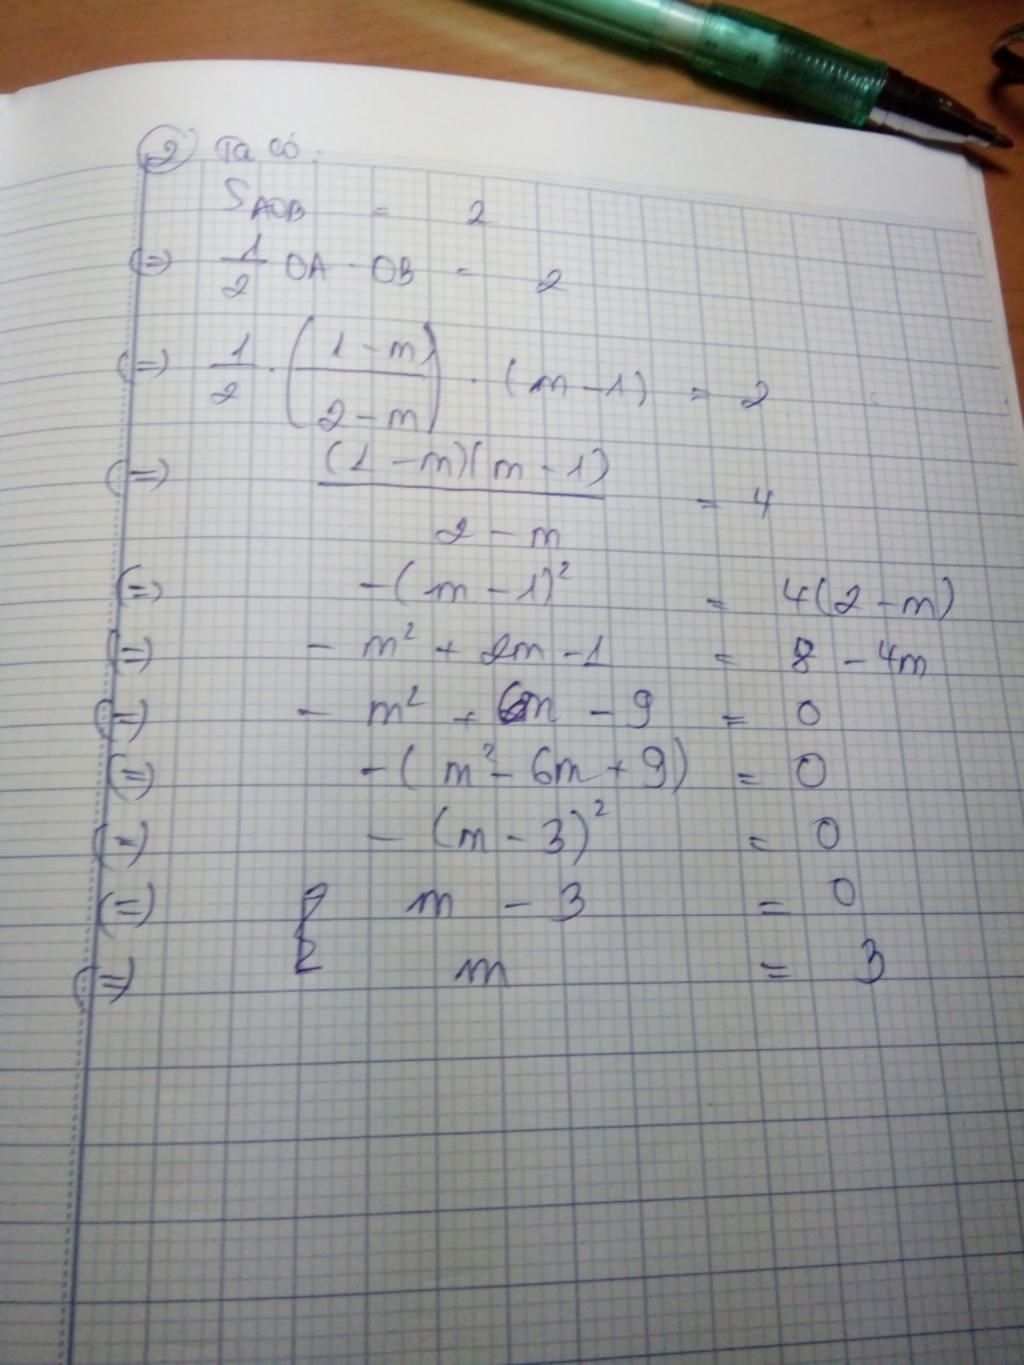 ② Ta có:
S_AOB = 2
(=) 1/2 OA . OB = 2
(=) 1/2 . ((1 - m)/(2 - m)) . (m - 1) = 2
(=) (1 - m)(m - 1)/(2 - m) = 4
(=) -(m - 1)² = 4(2 - m)
(=) - m² + 2m - 1 = 8 - 4m
(=) - m² + 6m - 9 = 0
(=) -(m² - 6m + 9) = 0
(=) - (m - 3)² = 0
(=) m - 3 = 0
(=) m = 3